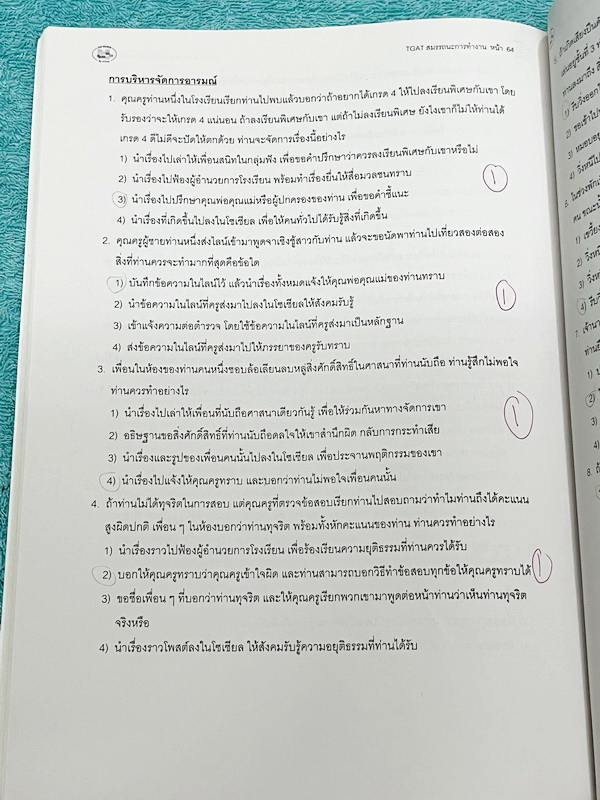 TGAT สมรรถนะการทำงาน หน้า 64
การบริหารจัดการอารมณ์
1. คุณครูท่านหนึ่งในโรงเรียนเรียกท่านไปพบแล้วบอกว่าถ้าอยากได้เกรด 4 ให้ไปลงเรียนพิเศษกับเขา โดย
รับรองว่าจะให้เกรด 4 แน่นอน ถ้าลงเรียนพิเศษกับเขา แต่ถ้าไม่ลงเรียนพิเศษ ยังไงเขาก็ไม่ให้ท่านได้
เกรด 4 ดีไม่ดีจะปัดให้ตกด้วย ท่านจะจัดการเรื่องนี้อย่างไร
1) นำเรื่องไปเล่าให้เพื่อนสนิทในกลุ่มฟัง เพื่อขอคำปรึกษาว่าควรลงเรียนพิเศษกับเขาหรือไม่
2) นำเรื่องไปฟ้องผู้อำนวยการโรงเรียน พร้อมทำเรื่องยื่นให้สื่อมวลชนทราบ
3) นำเรื่องไปปรึกษาคุณพ่อคุณแม่หรือผู้ปกครองของท่าน เพื่อขอคำชี้แนะ
4) นำเรื่องที่เกิดขึ้นไปลงในโซเชียล เพื่อให้คนทั่วไปได้รับรู้สิ่งที่เกิดขึ้น
1
2. คุณครูผู้ชายท่านหนึ่งส่งไลน์เข้ามาพูดจาเชิงชู้สาวกับท่าน แล้วจะขอนัดพาท่านไปเที่ยวสองต่อสอง
สิ่งที่ท่านควรจะทำมากที่สุดคือข้อใด
1) บันทึกข้อความในไลน์ไว้ แล้วนำเรื่องทั้งหมดแจ้งให้คุณพ่อคุณแม่ของท่านทราบ
2) นำข้อความในไลน์ที่ครูส่งมาไปลงในโซเชียลให้สังคมรับรู้
3) เข้าแจ้งความต่อตำรวจ โดยใช้ข้อความในไลน์ที่ครูส่งมาเป็นหลักฐาน
4) ส่งข้อความในไลน์ที่ครูส่งมาไปให้ภรรยาของครูรับทราบ
1
3. เพื่อนในห้องของท่านคนหนึ่งชอบล้อเลียนลบหลู่สิ่งศักดิ์สิทธิ์ในศาสนาที่ท่านนับถือ ท่านรู้สึกไม่พอใจ
ท่านควรทำอย่างไร
1) นำเรื่องไปเล่าให้เพื่อนที่นับถือศาสนาเดียวกันรู้ เพื่อให้ร่วมกันหาทางจัดการเขา
2) อธิษฐานขอสิ่งศักดิ์สิทธิ์ที่ท่านนับถือดลใจให้เขาสำนึกผิด กลับการกระทำเสีย
3) นำเรื่องและรูปของเพื่อนคนนั้นไปลงในโซเชียล เพื่อประจานพฤติกรรมของเขา
4) นำเรื่องไปแจ้งให้คุณครูทราบ และบอกว่าท่านไม่พอใจเพื่อนคนนั้น
1
4. ถ้าท่านไม่ได้ทุจริตในการสอบ แต่คุณครูที่ตรวจข้อสอบเรียกท่านไปสอบถามว่าทำไมท่านถึงได้คะแนน
สูงผิดปกติ เพื่อน ๆ ในห้องบอกว่าท่านทุจริต พร้อมทั้งหักคะแนนของท่าน ท่านควรทำอย่างไร
1) นำเรื่องราวไปฟ้องผู้อำนวยการโรงเรียน เพื่อร้องเรียนความยุติธรรมที่ท่านควรได้รับ
2) บอกให้คุณครูทราบว่าคุณครูเข้าใจผิด และท่านสามารถบอกวิธีทำข้อสอบทุกข้อให้คุณครูทราบได้
1
3) ขอชื่อเพื่อน ๆ ที่บอกว่าท่านทุจริต และให้คุณครูเรียกพวกเขามาพูดต่อหน้าท่านว่าเห็นท่านทุจริต
จริงหรือ
4) นำเรื่องราวโพสต์ลงในโซเชียล ให้สังคมรับรู้ความอยุติธรรมที่ท่านได้รับ